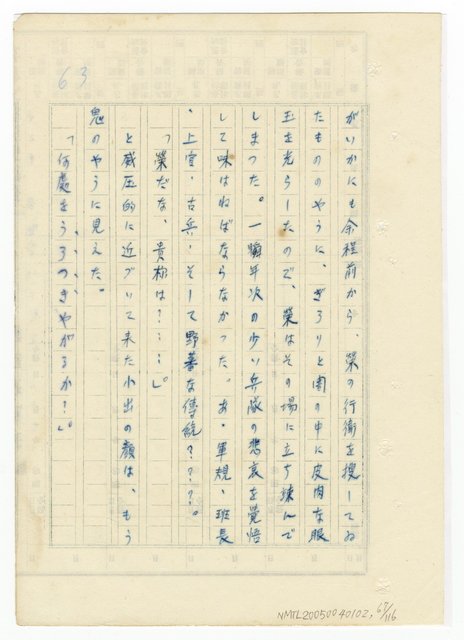 63
がいかにも余程前から、榮の行衛を捜してゐ
たもののやうに、ぎろりと闇の中に皮肉な眼
玉を光らしたので、榮はその場に立ち竦んで
しまつた。一瞬年次の少い兵隊の悲哀を覺悟
して味はねばならなかつた。あゝ軍規、班長
、上官、古兵、そして野蕃な傳統???。
「榮だな、貴様は?・・・」
と威圧的に近づいて来た小出の顔は、もう
鬼のやうに見えた。
「何處をうろつきやがるか?」
NMTL20050040102, 67/116